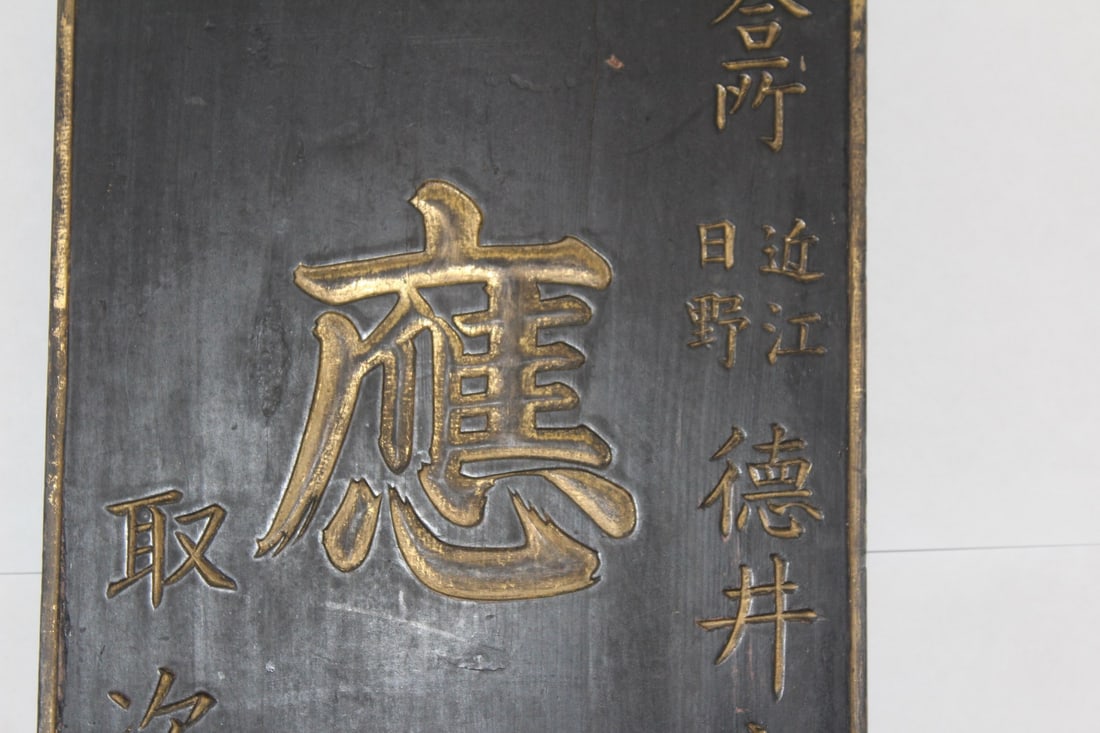 合所
近江
日野
德井
應
取次